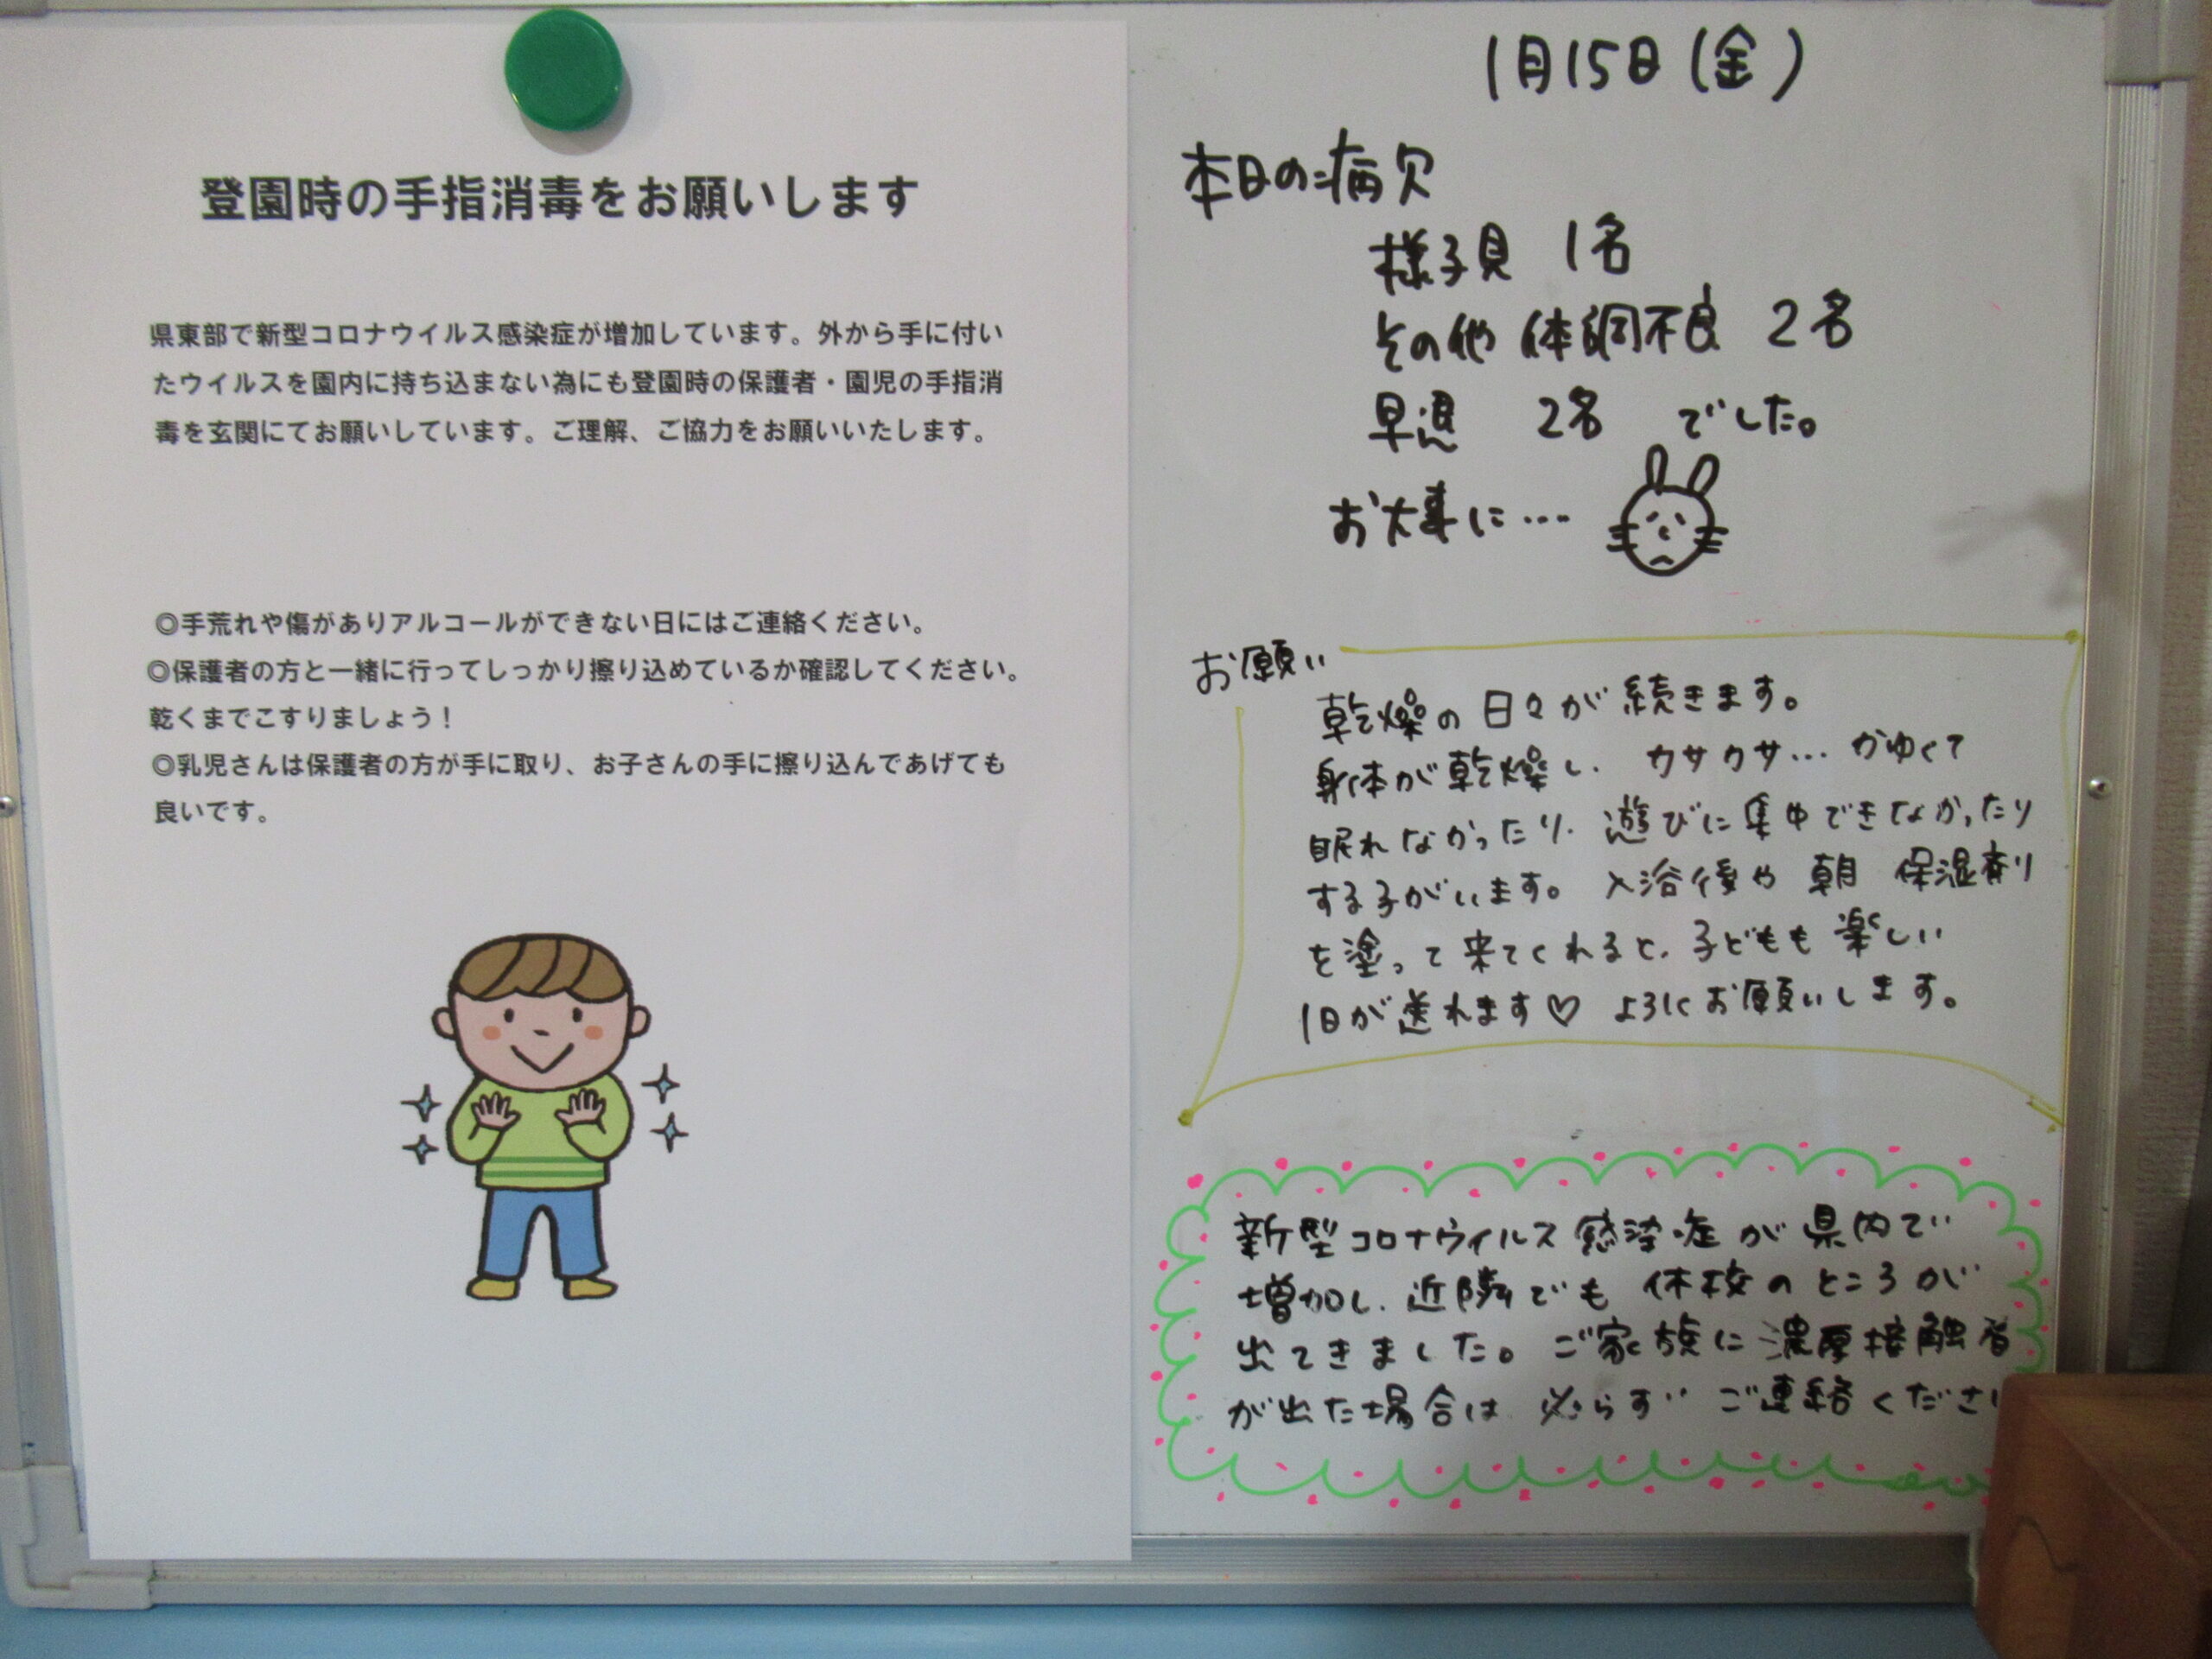 登園時の手指消毒をお願いします
県東部で新型コロナウイルス感染症が増加しています。外から手に付い
たウイルスを園内に持ち込まない為にも登園時の保護者・園児の手指消
毒を玄関にてお願いしています。ご理解、ご協力をお願いいたします。
◎手荒れや傷がありアルコールができない日にはご連絡ください。
◎保護者の方と一緒に行ってしっかり擦り込めているか確認してください。
乾くまでこすりましょう！
◎乳児さんは保護者の方が手に取り、お子さんの手に擦り込んであげても
良いです。
1月15日(金)
本日の病欠
様子見 1名
その他 体調不良 2名
早退 2名 でした。
お大事に…
お願い
乾燥の日々が続きます。
身体が乾燥し、カサカサ…かゆくて
眠れなかったり、遊びに集中できなかったり
する子がいます。入浴後や朝 保湿剤
を塗って来てくれると、子どもも楽しい
1日が送れます♡ よろしくお願いします。
新型コロナウィルス感染症が県内で
増加し、近隣でも休校のところが
出てきました。ご家族に濃厚接触者
が出た場合は必らずご連絡ください